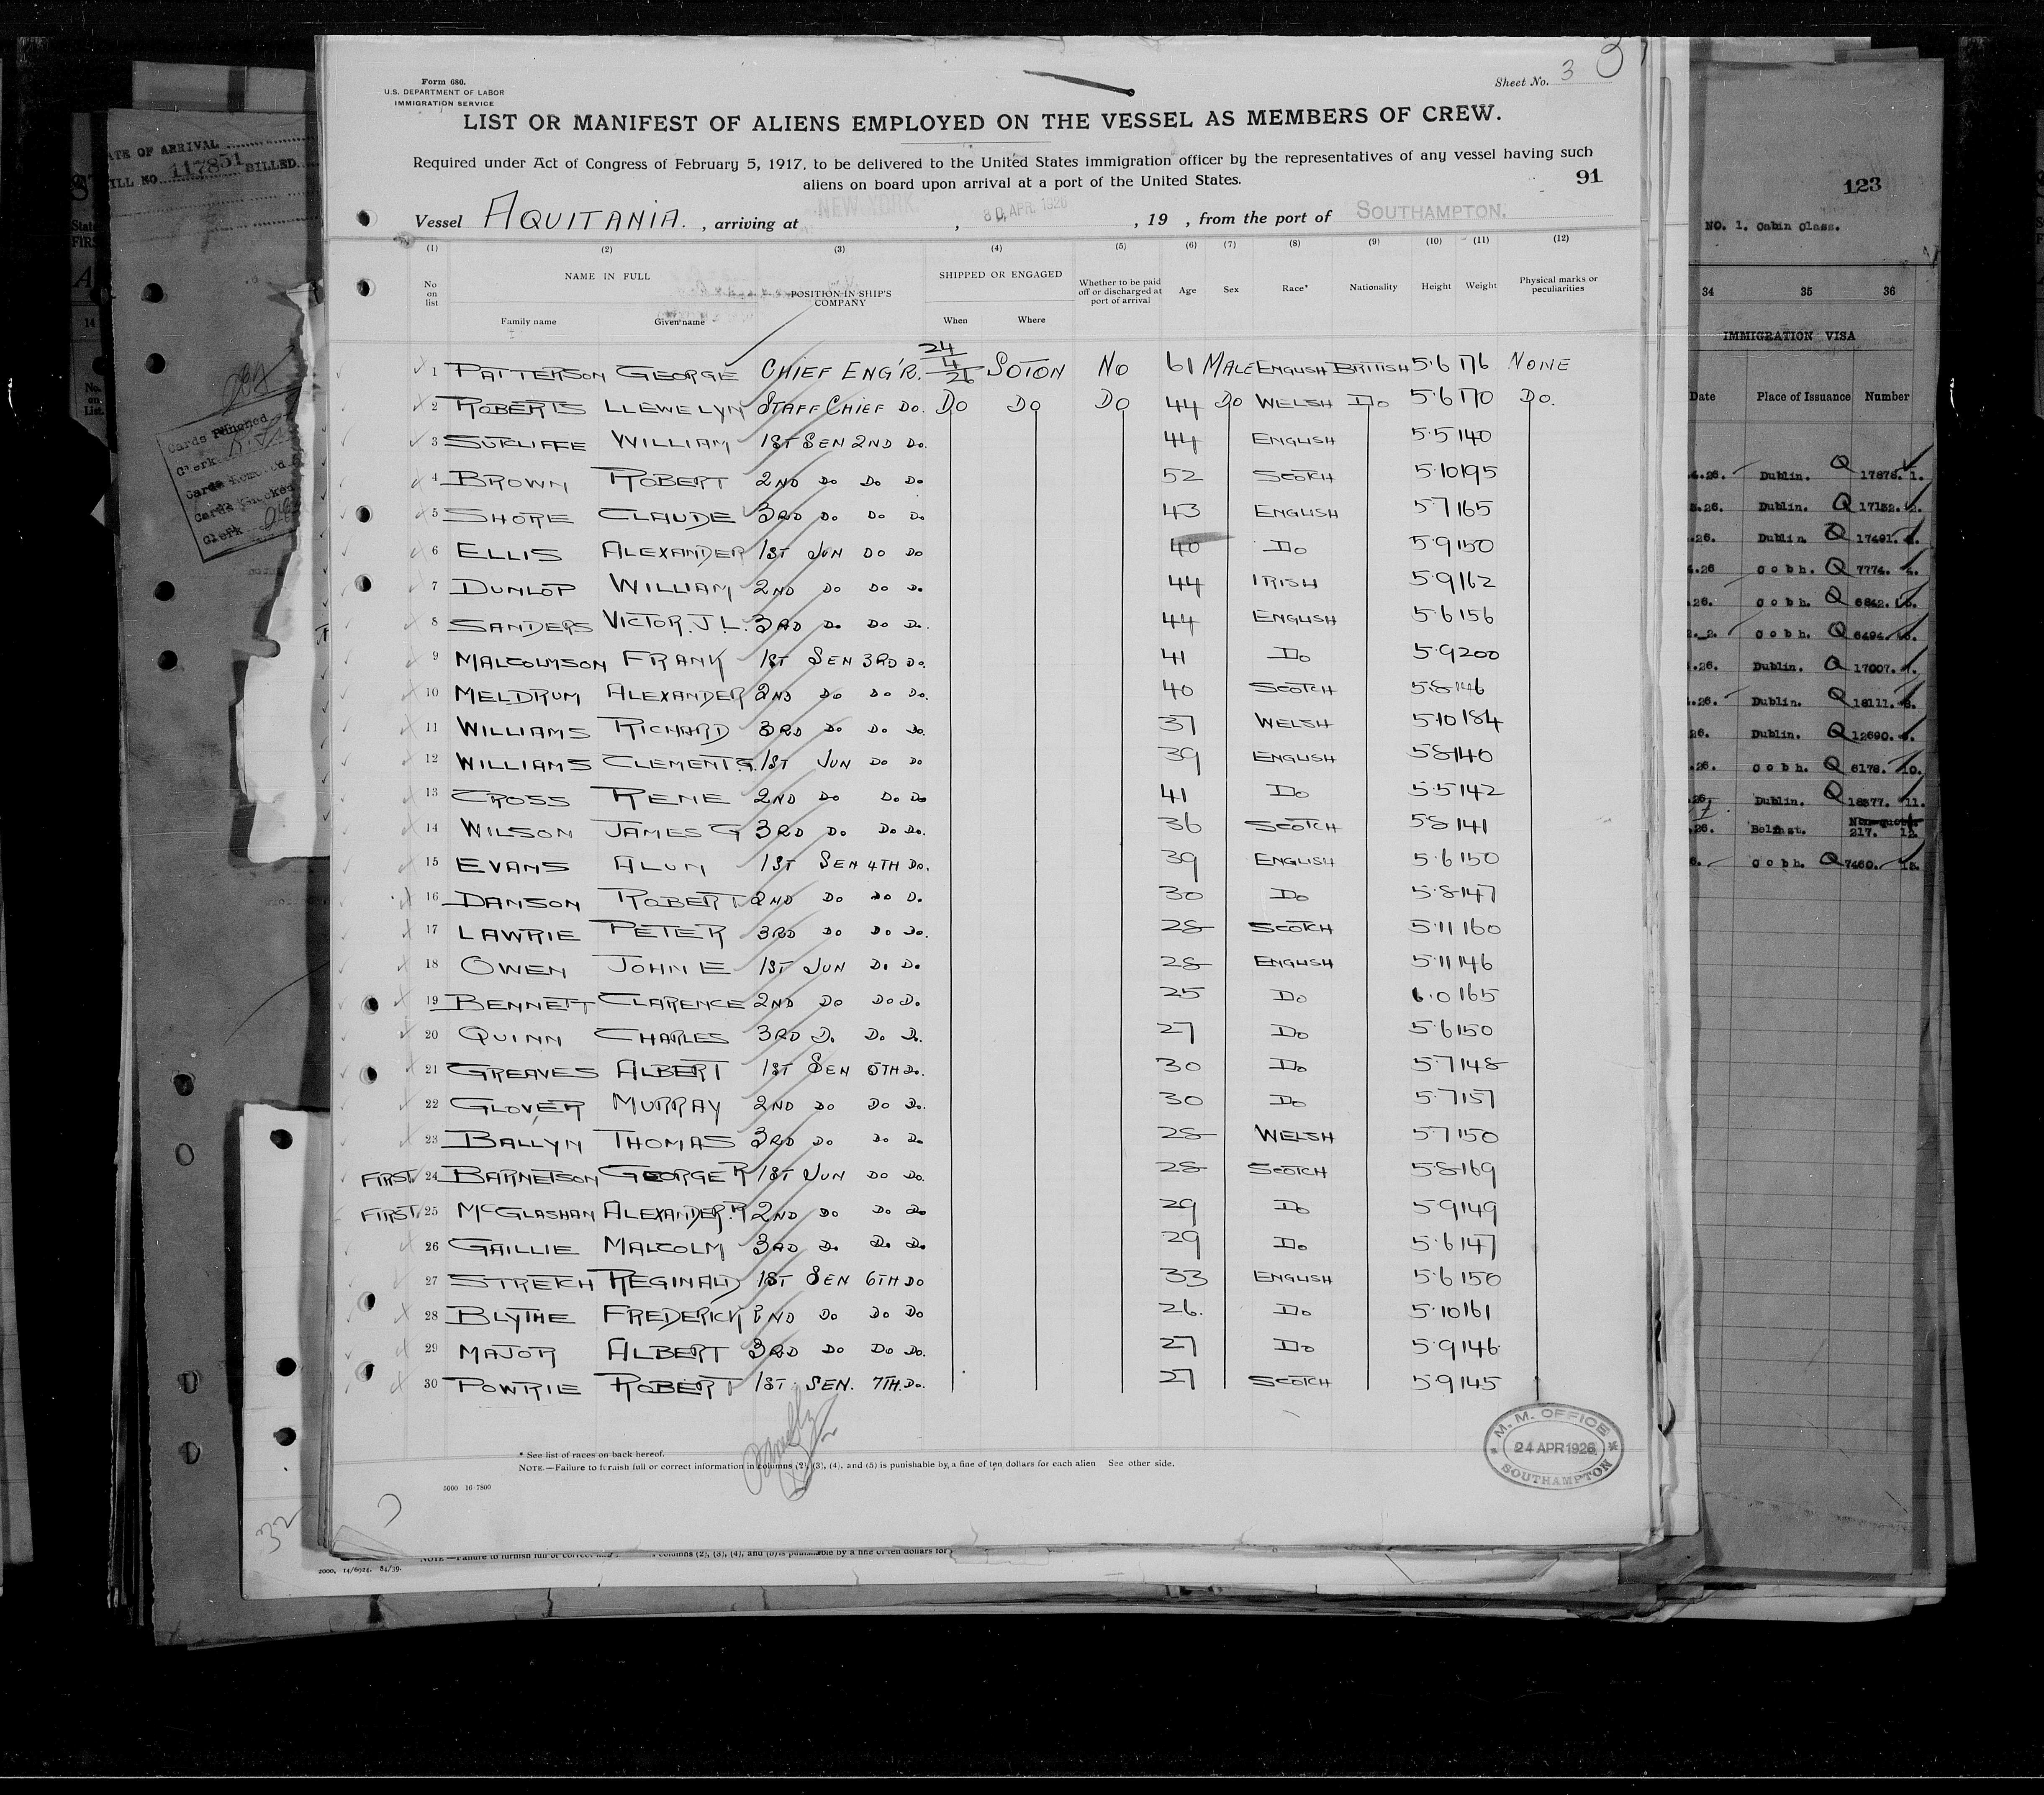 Form 680.
U.S. DEPARTMENT OF LABOR
IMMIGRATION SERVICE
Sheet No. 3
3
LIST OR MANIFEST OF ALIENS EMPLOYED ON THE VESSEL AS MEMBERS OF CREW.
Required under Act of Congress of February 5, 1917, to be delivered to the United States immigration officer by the representatives of any vessel having such
aliens on board upon arrival at a port of the United States.
91
Vessel AQUITANIA. , arriving at NEW YORK. , 30 APR. 1926 , 19 , from the port of SOUTHAMPTON.
(1) (2) (3) (4) (5) (6) (7) (8) (9) (10) (11) (12)
No on list NAME IN FULL Family name Given name POSITION IN SHIP'S COMPANY SHIPPED OR ENGAGED When Where Whether to be paid off or discharged at port of arrival Age Sex Race* Nationality Height Weight Physical marks or peculiarities
1 PATTERSON GEORGE CHIEF ENG'R. 24/4/26 SOTON NO 61 MALE ENGLISH BRITISH 5·6 176 NONE
2 ROBERTS LLEWELYN STAFF CHIEF DO. DO DO DO 44 DO WELSH DO 5·6 170 DO.
3 SUTCLIFFE WILLIAM 1ST SEN 2ND DO. 44 ENGLISH 5·5 140
4 BROWN ROBERT 2ND DO DO DO 52 SCOTCH 5·10 195
5 SHORE CLAUDE 3RD DO DO DO 43 ENGLISH 5·7 165
6 ELLIS ALEXANDER 1ST JUN DO DO 40 DO 5·9 150
7 DUNLOP WILLIAM 2ND DO DO DO 44 IRISH 5·9 162
8 SANDERS VICTOR. J L. 3RD DO DO DO. 44 ENGLISH 5·6 156
9 MALCOLMSON FRANK 1ST SEN 3RD DO. 41 DO 5·9 200
10 MELDRUM ALEXANDER 2ND DO DO DO. 40 SCOTCH 5·8 146
11 WILLIAMS RICHARD 3RD DO DO DO. 37 WELSH 5·10 184
12 WILLIAMS CLEMENT.G. 1ST JUN DO DO 39 ENGLISH 5·8 140
13 CROSS RENE 2ND DO DO DO 41 DO 5·5 142
14 WILSON JAMES G 3RD DO. DO DO. 36 SCOTCH 5·8 141
15 EVANS ALUN 1ST SEN 4TH DO. 39 ENGLISH 5·6 150
16 DANSON ROBERT 2ND DO DO DO. 30 DO 5·8 147
17 LAWRIE PETER 3RD DO DO DO. 28 SCOTCH 5·11 160
18 OWEN JOHN E 1ST JUN DO DO 28 ENGLISH 5·11 146
19 BENNETT CLARENCE 2ND DO DO DO. 25 DO 6·0 165
20 QUINN CHARLES 3RD DO DO DO. 27 DO 5·6 150
21 GREAVES ALBERT 1ST SEN 5TH DO. 30 DO 5·7 148
22 GLOVER MURRAY 2ND DO DO DO. 30 DO 5·7 157
23 BALLYN THOMAS 3RD DO DO DO 28 WELSH 5·7 150
FIRST 24 BARNETSON GEORGE R 1ST JUN DO DO. 28 SCOTCH 5·8 169
FIRST 25 McGLASHAN ALEXANDER. R 2ND DO DO DO 29 DO 5·9 149
26 GAILLIE MALCOLM 3RD DO DO DO 29 DO 5·6 147
27 STRETCH REGINALD 1ST SEN 6TH DO 33 ENGLISH 5·6 150
28 BLYTHE FREDERICK 2ND DO DO DO 26. DO 5·10 161
29 MAJOR ALBERT 3RD DO DO DO. 27 DO 5·9 146
30 POWRIE ROBERT 1ST SEN. 7TH. DO. 27 SCOTCH 5·9 145
* See list of races on back hereof.
NOTE.—Failure to furnish full or correct information in columns (2), (3), (4), and (5) is punishable by a fine of ten dollars for each alien See other side.
5000 16 7800
M. M. OFFICE
24 APR 1926
SOUTHAMPTON
32
2000, 14/6924. 84/39.
ATE OF ARRIVAL
ILL NO. 117851 BILLED.
14
No. on List.
Clerk
Clerk
123
NO. 1. Cabin Class.
34 35 36
IMMIGRATION VISA
Date Place of Issuance Number
4.26. Dublin. Q 17878. 1.
Dublin. Q 17152. 2.
.26. Dublin. Q 17491.
.26 Cobh. Q 7774. 4.
.26. Cobh. Q 6642.
Cobh. Q 6494.
.26. Dublin. Q 17007.
.26. Dublin. Q 18111.
26. Dublin. Q 12690.
.26. Cobh. Q 6178. 10.
.26. Dublin. Q 18577. 11.
.26. Belfast. Non-quota 217. 12.
Cobh. Q 7460. 13.